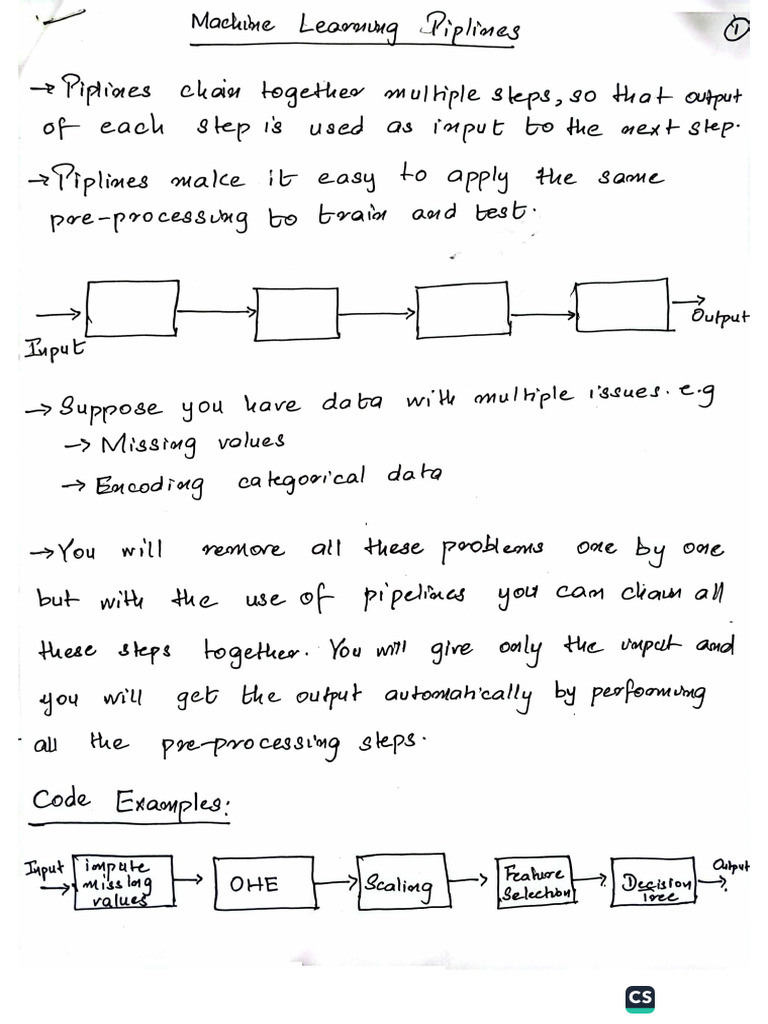 Machine Learning Piplines
1
→ Piplines chain together multiple steps, so that output
of each step is used as input to the next step.
→ Piplines make it easy to apply the same
pre-processing to train and test.
Input
Output
→ Suppose you have data with multiple issues. e.g
→ Missing values
→ Encoding categorical data
→ You will remore all these problems one by one
but with the use of pipelines you can chain all
these steps together. You will give only the input and
you will get the output automatically by performing
all the pre-processing steps.
Code Examples:
Input
impute
missing
values
OHE
Scaling
Feature
Selection
Decision
Tree
Output
CS